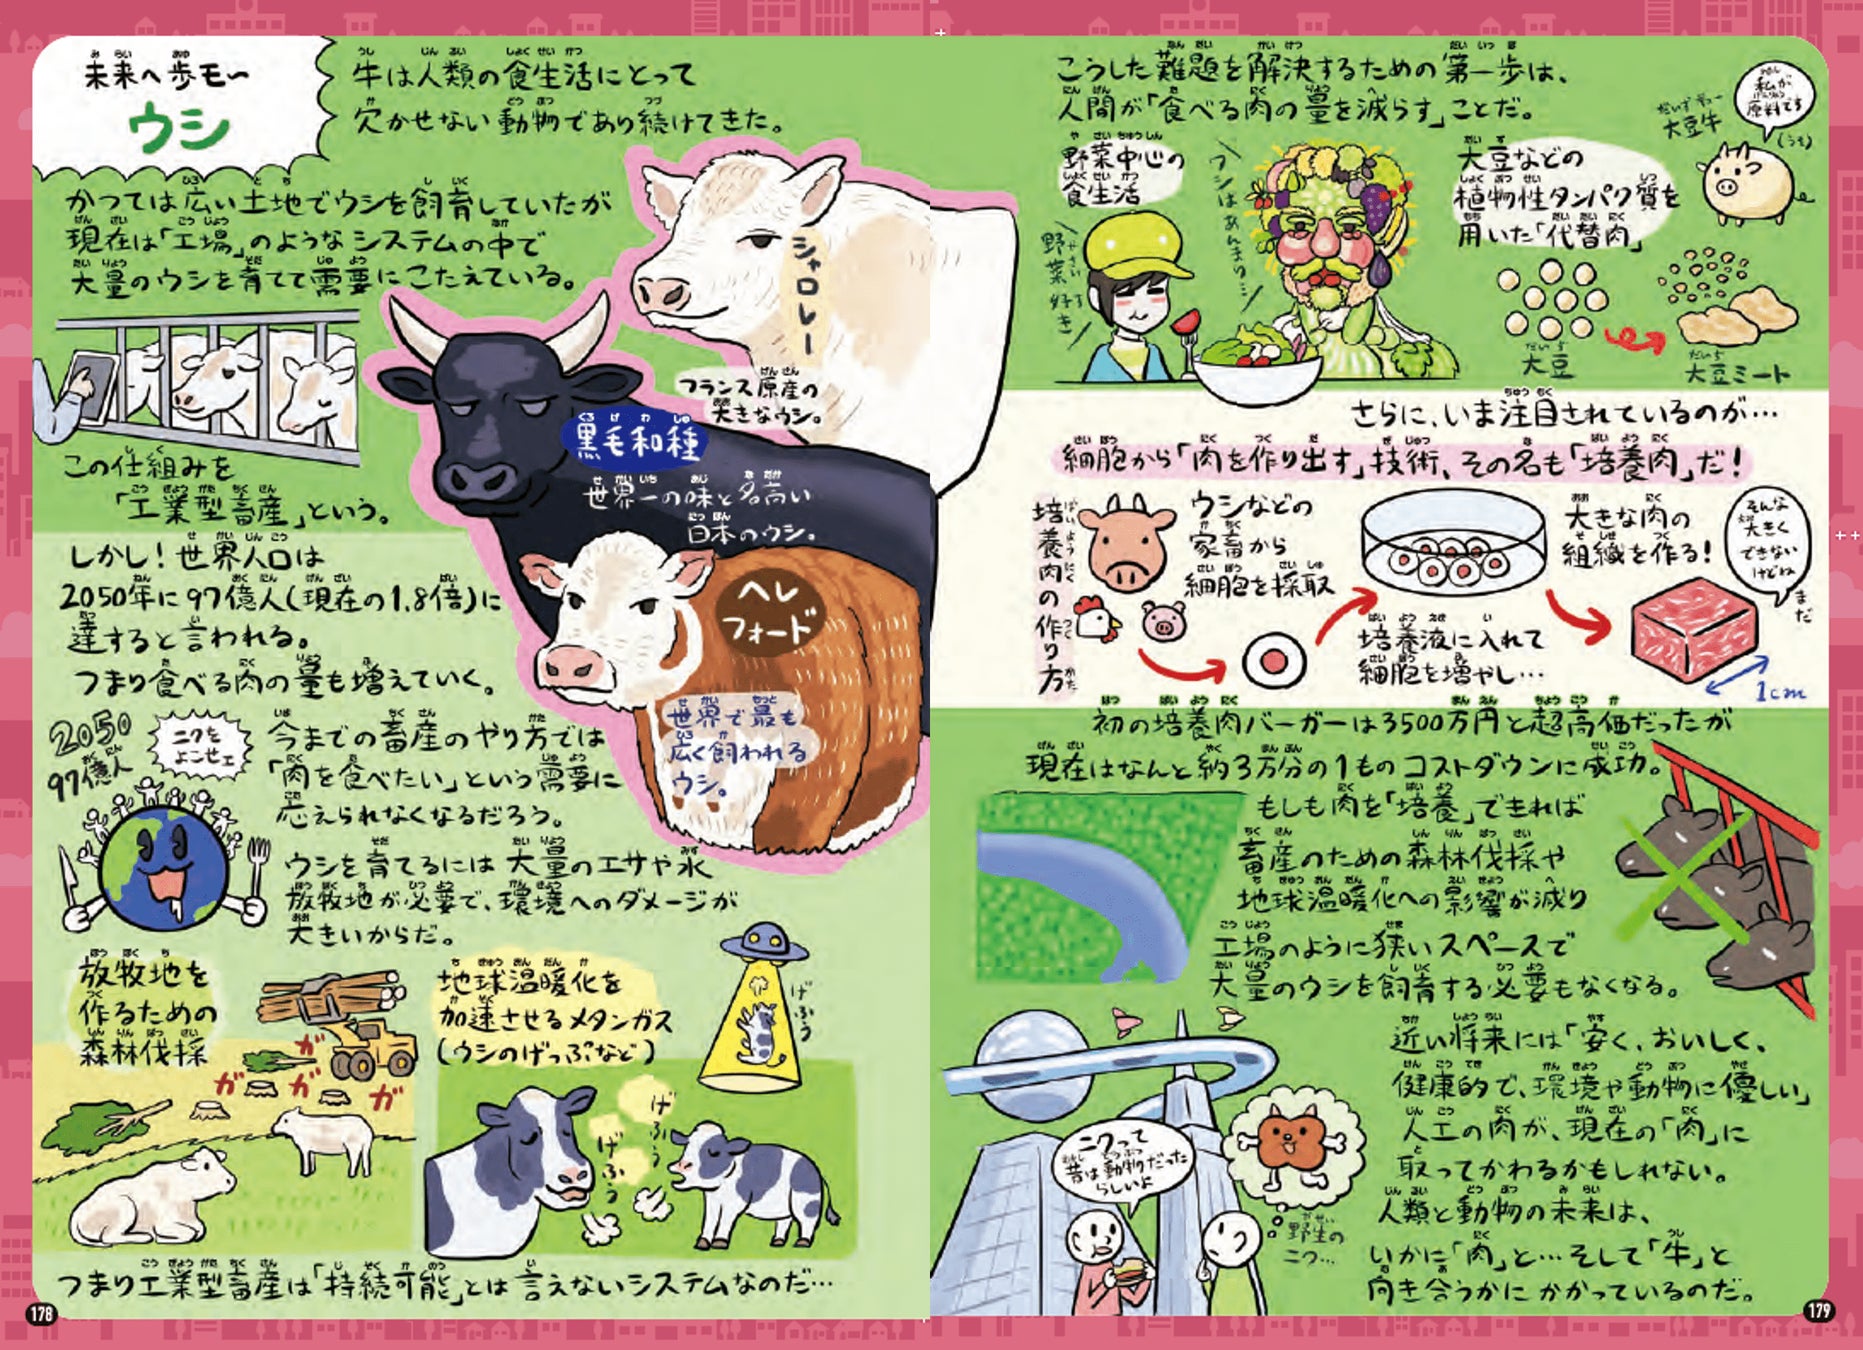 未来へ歩モ〜
ウシ
牛は人類の食生活にとって
欠かせない動物であり続けてきた。
かつては広い土地でウシを飼育していたが
現在は「工場」のようなシステムの中で
大量のウシを育てて需要にこたえている。
シャロレー
フランス原産の
大きなウシ。
黒毛和種
世界一の味と名高い
日本のウシ。
この仕組みを
「工業型畜産」という。
しかし！世界人口は
2050年に97億人(現在の1.8倍)に
達すると言われる。
つまり食べる肉の量も増えていく。
ヘレ
フォード
世界で最も
広く飼われる
ウシ。
2050
97億人
ニクを
よこせェ
今までの畜産のやり方では
「肉を食べたい」という需要に
応えられなくなるだろう。
ウシを育てるには大量のエサや水
放牧地が必要で、環境へのダメージが
大きいからだ。
放牧地を
作るための
森林伐採
ガ
ガ
ガ
ガ
地球温暖化を
加速させるメタンガス
(ウシのげっぷなど)
げふう
げふう
げふう
つまり工業型畜産は「持続可能」とは言えないシステムなのだ…
178
こうした難題を解決するための第一歩は、
人間が「食べる肉の量を減らす」ことだ。
野菜中心の
食生活
野菜好き
ウシはあんまり…
大豆などの
植物性タンパク質を
用いた「代替肉」
大豆牛
(うそ)
私が
原料です
大豆
大豆ミート
さらに、いま注目されているのが…
細胞から「肉を作り出す」技術、その名も「培養肉」だ！
培養肉の作り方
ウシなどの
家畜から
細胞を採取
培養液に入れて
細胞を増やし…
大きな肉の
組織を作る！
そんな
大きく
できない
けどね
まだ
1cm
初の培養肉バーガーは3500万円と超高価だったが
現在はなんと約3万分の1ものコストダウンに成功。
もしも肉を「培養」できれば
畜産のための森林伐採や
地球温暖化への影響が減り
工場のように狭いスペースで
大量のウシを飼育する必要もなくなる。
近い将来には「安く、おいしく、
健康的で、環境や動物に優しい」
人工の肉が、現在の「肉」に
取ってかわるかもしれない。
人類と動物の未来は、
いかに「肉」と…そして「牛」と
向き合うかにかかっているのだ。
ニクって
昔は動物だった
らしいよ
野生の
ニク…
179